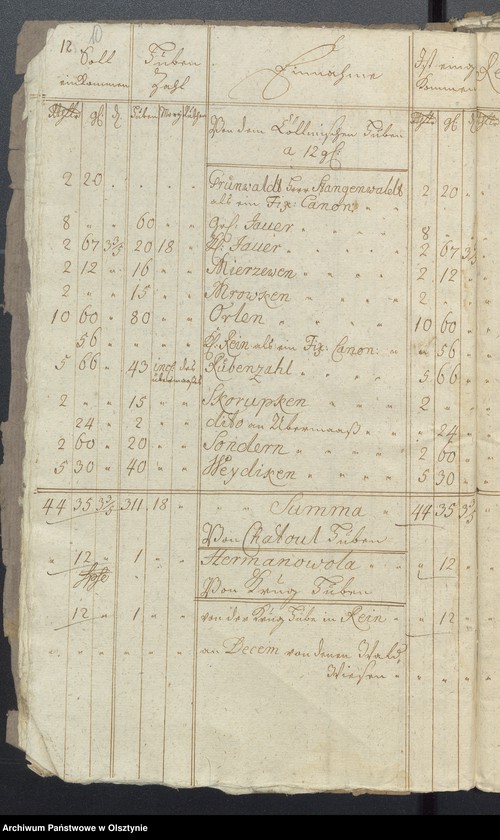 12.
Soll
einkommen
Huben
Zahl
Einnahme
Ist eingekommen
Rthlr gl d Huben Morg Ruthen
Von dem Cöllmischen Huben
a 12 gl
2 20 Grünwaldt Herr Stangenwaldt 2 20
als ein Fix: Canon
8 60 Gros Jauer 8
2 67 3 3/5 20 18 Kl. Jauer 2 67 3
2 12 16 Mierzewen 2 12
2 15 Mrowken 2
10 60 80 Orlen 10 60
56 Kl. Rein als ein Fix: Canon 56
5 66 43 incl des Übermaaß Rübenzahl 5 66
2 15 Skorupken 2
24 2 dito an Übermaaß 24
2 60 20 Sondern 2 60
5 30 40 Weydiken 5 30
44 35 3 3/5 311 18 Summa 44 35 3 3/5
Von Chatoul Huben
12 1 Hermanowola 12
Von Krug Huben
12 1 von der Krug Hube in Rein 12
an Decem von denen Wald
Wiesen
Archiwum Państwowe w Olsztynie